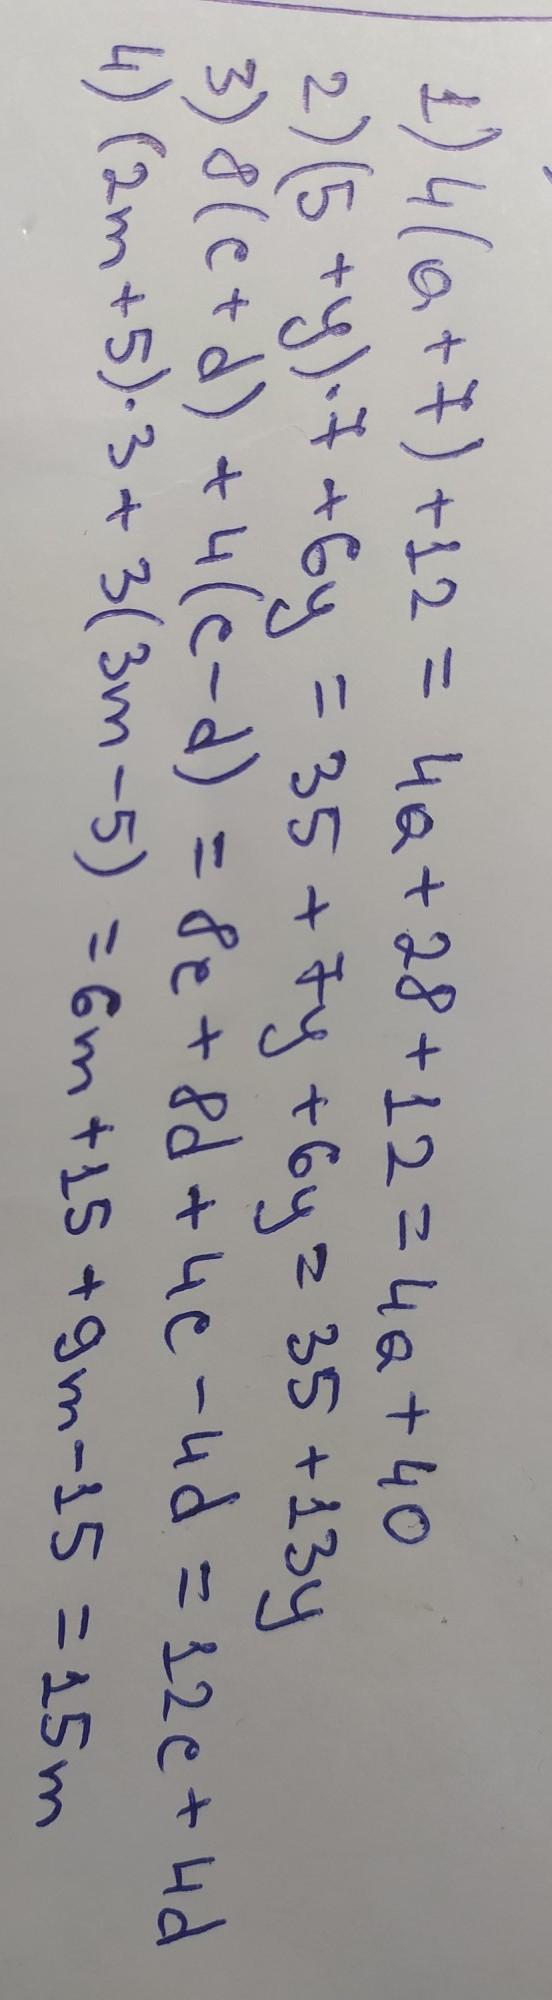 1) 4(a+7)+12 = 4a+28+12 = 4a+40
2) (5+y)·7+6y = 35+7y+6y = 35+13y
3) 8(c+d)+4(c-d) = 8c+8d+4c-4d = 12c+4d
4) (2m+5)·3+3(3m-5) = 6m+15+9m-15 = 15m